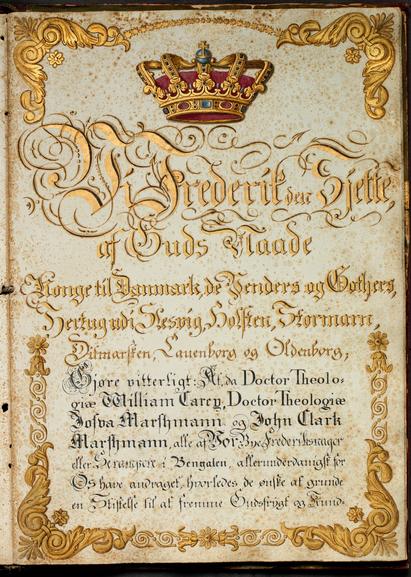 Vi Frederik den Sjette,
af Guds Naade
Konge til Danmark, de Venders og Gothers,
Hertug udi Slesvig, Holsten, Stormarn,
Ditmarsken, Lauenborg og Oldenborg,
Gjøre vitterligt: At, da Doctor Theolo-
giæ William Carey, Doctor Theologiæ
Josva Marshmann og John Clark
Marshmann, alle af Vor Bye Frederiksnagor
eller Serampore i Bengalen, allerunderdanigst for
Os have andraget, hvorledes de ønske at grunde
en Stiftelse til at fremme Gudsfrygt og Kund-